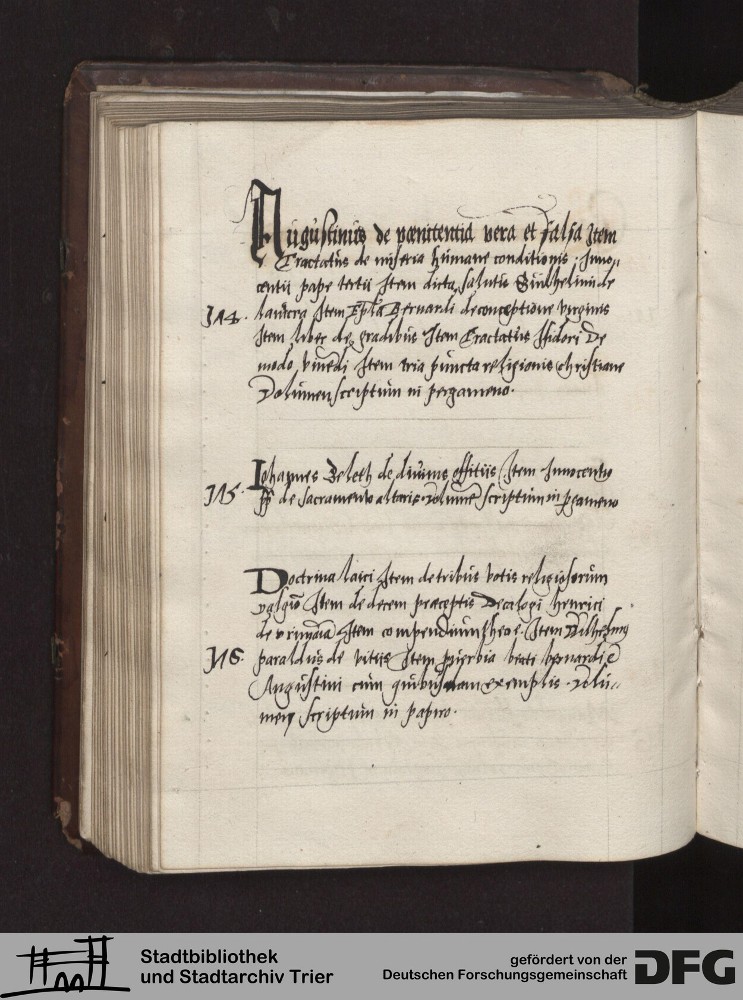 Augustinus de pœnitentia vera et falsa Item
Tractatus de miseria humane conditionis Inno„
centii pape tertii Item dieta salutis Guilhelmi de
N4. lauicea Item Epla Bernardi de conceptione virginis
Item liber de gradibus Item Tractatus Isidori De
modo viuendi Item tria puncta religionis christiane
Volumen scriptum in pergameno.
Iohannes Beleth de diuinis offitiis Item Innocentius
N5. pp de sacramento altaris volume scriptum in pgameno
Doctrina laici Item de tribus votis religiosorum
Item de decem præceptis Decalogi henrici
de vrimaria Item compendium theoe. Item Wilhelmus
N6. paraldus de vitiis Item puerbia beati bernardi e
Augustini cum quibusdam exemplis volu„
men scriptum in papiro.
Stadtbibliothek
und Stadtarchiv Trier
gefördert von der
Deutschen Forschungsgemeinschaft DFG